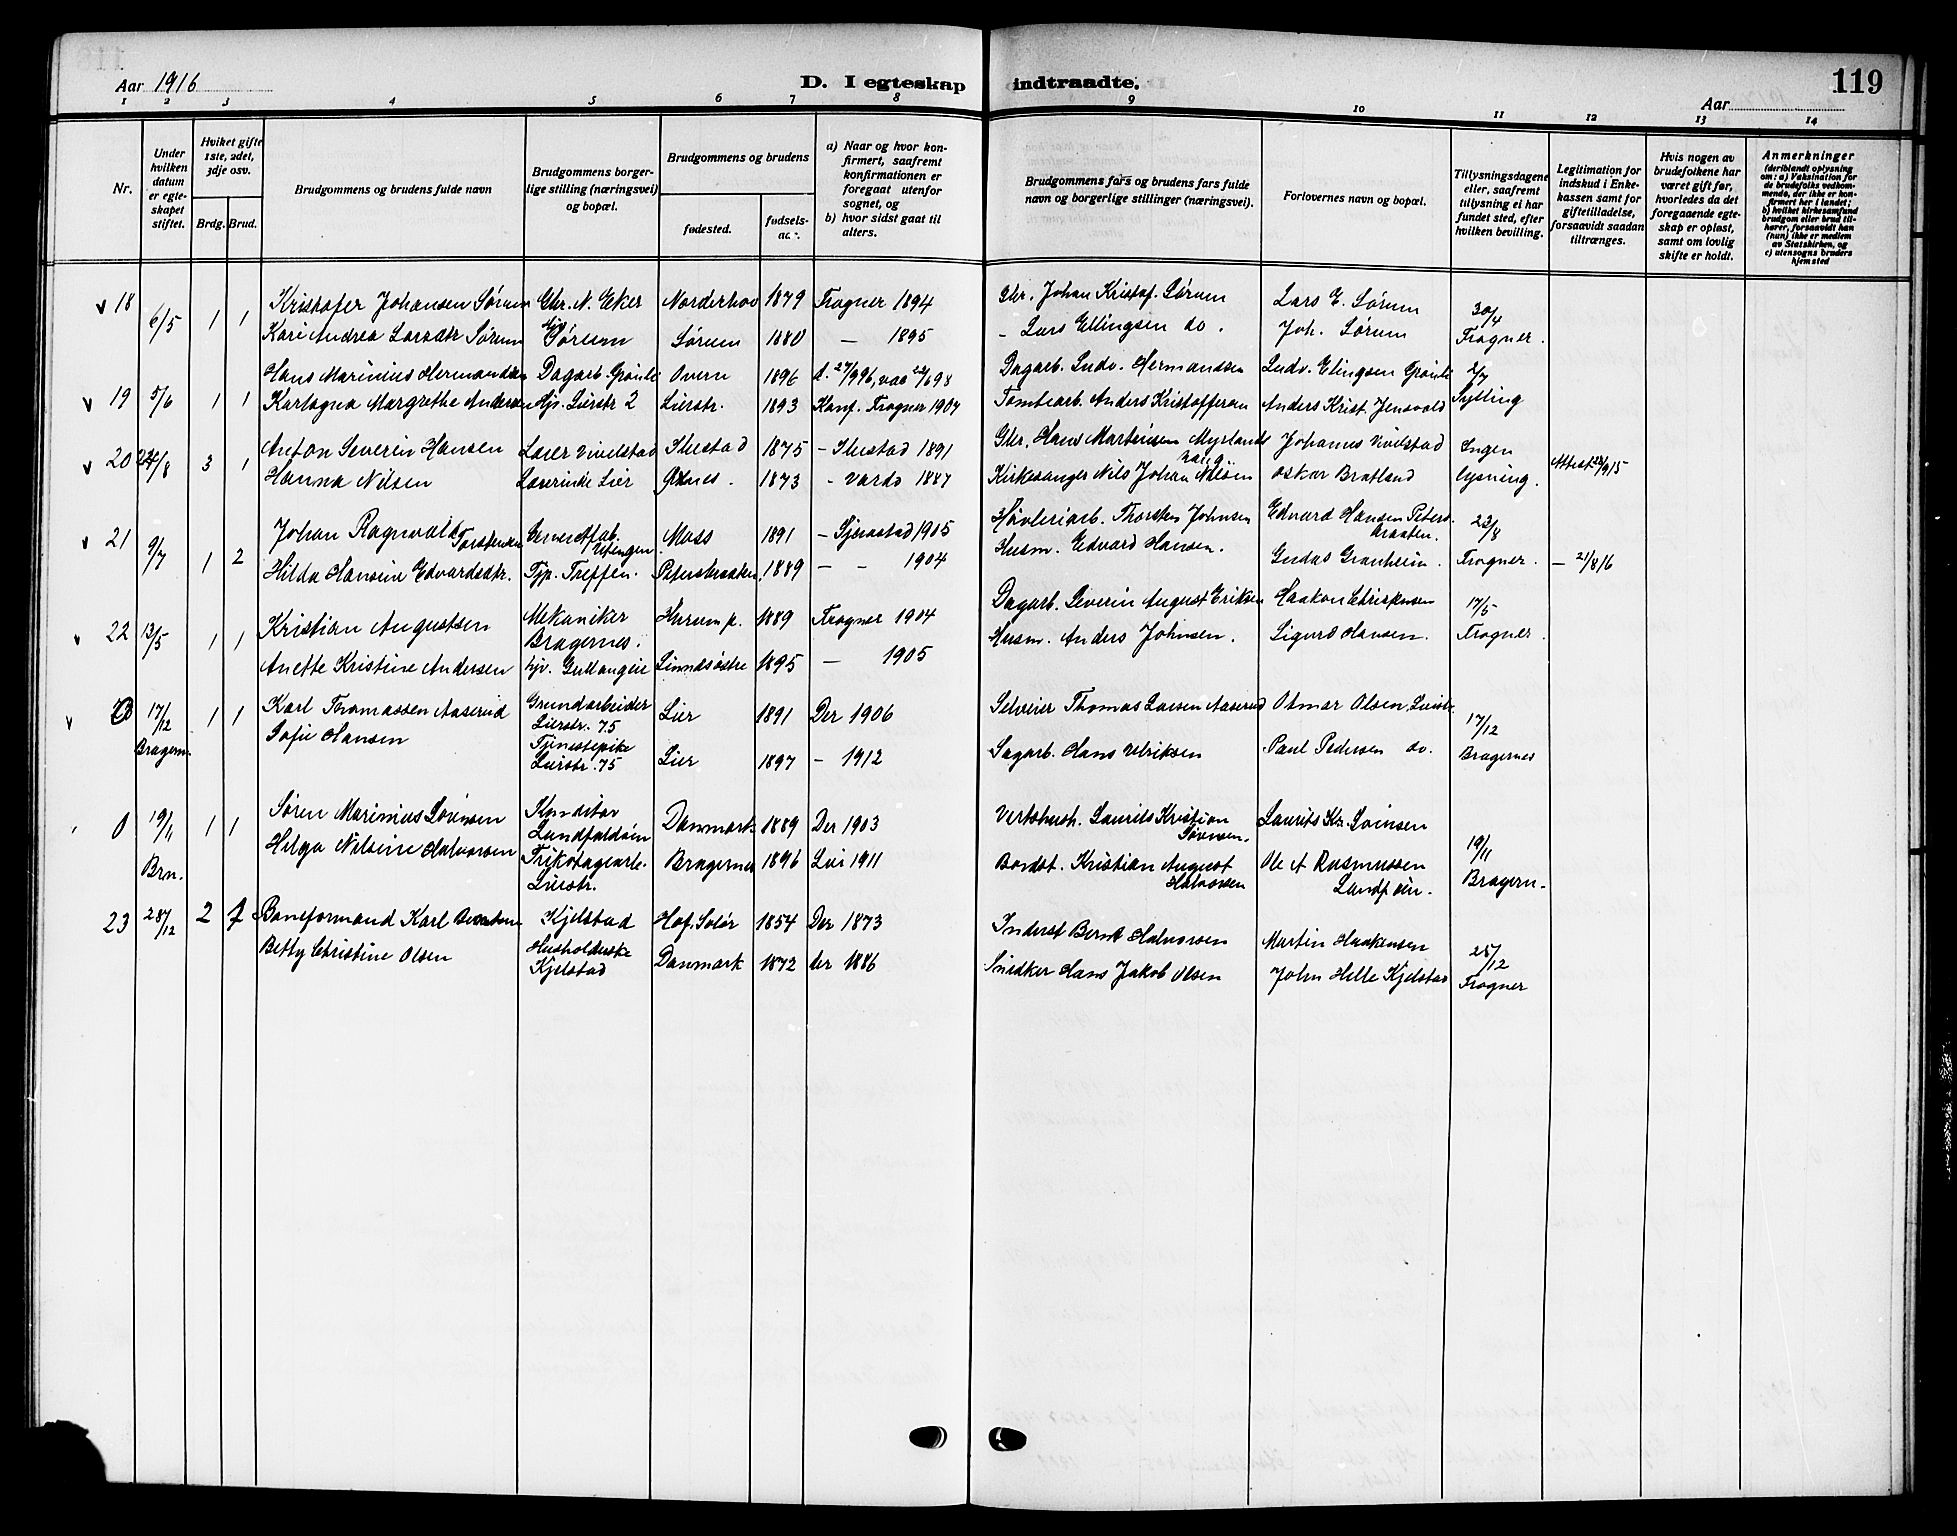 Aar 1916
D. I egteskap indtraadte.
119
Aar
1 2 3 4 5 6 7 8 9 10 11 12 13 14
Nr.
Under hvilken datum er egteskapet stiftet.
Hvilket gifte 1ste, 2det, 3dje osv.
Brdg. Brud.
Brudgommens og brudens fulde navn
Brudgommens borgerlige stilling (næringsvei) og bopæl.
Brudgommens og brudens
fødested.
fødselsaar.
a) Naar og hvor konfirmert, saafremt konfirmationen er foregaat utenfor sognet, og
b) hvor sidst gaat til alters.
Brudgommens fars og brudens fars fulde navn og borgerlige stillinger (næringsvei).
Forlovernes navn og bopæl.
Tillysningsdagene eller, saafremt tillysning ei har fundet sted, efter hvilken bevilling.
Legitimation for indskud i Enkekassen samt for giftetilladelse, forsaavidt saadan tiltrænges.
Hvis nogen av brudefolkene har været gift før, hvorledes da det foregaaende egteskap er opløst, samt om lovlig skifte er holdt.
Anmerkninger (deriblandt oplysning om: a) Vaksination for de brudefolks vedkommende, der ikke er konfirmert her i landet; b) hvilket kirkesamfund brudgom eller brud tilhører, forsaavidt han (hun) ikke er medlem av Statskirken, og c) utensogns bruders hjemsted
v 18 6/5 1 1 Kristofer Johansen Sørum Gbr. N. Eker Norderhov 1879 Frogner 1894 Gbr. Johan Kristof. Sørum Lars E. Sørum 30/4
Kari Andrea Larsdtr Sørum Sørum Sørum 1880 — 1895 - Lars Ellingsen do. Joh. Sørum Frogner.
v 19 5/6 1 1 Hans Marinius Hermandsen Dagarb. Grønli Overn 1896 d. 27/9 96, vac 22/6 98 Dagarb. Ludv. Hermandsen Ludv. Elingsen Grønli
Karlagna Margrethe Andersen Hjv. Lierstr 2 Lierstr. 1893 Konf. Frogner 1907 Tomtearb. Anders Kristoffersen Anders Krist. Jensvold Sylling
v 20 /8 3 1 Anton Severin Hansen Lærer Vivelstad Ilustad 1875 - Ilustad 1891 Gbr. Hans Martinsen Myrland Johannes Vivelstad Ingen
Hanna Nilsen Lærerinde Lier Øxnes. 1873 - Vardø 1887 Kirkesanger Nils Johan Nilsen Oskar Bratland lysning. Attest 28/9 15
v 21 9/7 1 2 Johan Ragnvald Torstensen Moss 1891 - Gjerestad 1905 Høvleriarb. Thorsten Johnsen Edvard Hansen Petersbraaten. 22/8
Hilda Hansine Edvardsdtr. Tjp. Treffen. Petersbraaten. 1889 — - 1904 Husm. Edvard Hansen. Gudas Granheim. Frogner. — 21/8 16
v 22 13/5 1 1 Kristian Augustsen Mekaniker Bragernes. Hurum p. 1889 Frogner 1904 Dagarb. Severin August Eriksen Haakon Christensen 17/5
Anette Kristine Andersen hjv. Gullaugeie Linnesøstre 1895 — 1905 Husm. Anders Johnsen. Sigurd Hansen. Frogner.
v 0 17/12 Bragern. 1 1 Karl Thomassen Aaserud Grundarbeider Lierstr. 75 Lier 1891 Der 1906 Selveier Thomas Larsen Aaserud Otmar Olsen, Lierstr. 17/12
Sofie Hansen Tjenestepike Lierstr. 75 Lier 1897 - 1912 Sagarb. Hans Ulriksen Paul Pedersen do. Bragernes
0 19/11 Brn. 1 1 Søren Marinius Sørensen Konditor Lundfaldøin Danmark 1889 Der 1903 Vertshush. Laurits Kristian Sørensen. Laurits Kr. Sørensen 19/11
Helga Nilsine Halvorsen Trikotagearb. Lierstr. Bragernes 1896 Lier 1911 Bordst. Kristian August Halvorsen Ole A Rasmussen Lundf øin. Bragern.
23 28/12 2 1 Baneformand Karl Berntsen Kjelstad Hof. Solør 1854 Der 1873 Inderst Bernt Halvorsen Martin Haakensen 25/12
Betty Christine Olsen Husholderske Kjelstad Danmark 1872 der 1886 Snedker Hans Jakob Olsen John Helle Kjelstad Frogner